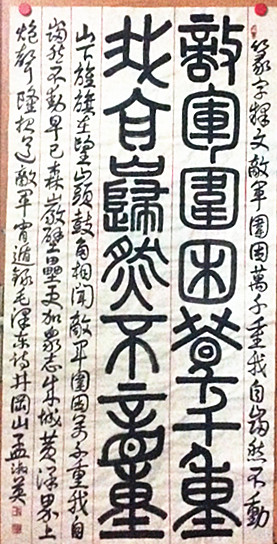 篆字释文敵軍圍困萬千重我自巋然不動
敵軍圍困萬千重
我自巋然不動
山下旌旗在望山頭鼓角相聞敵軍圍困万千重我自
巋然不動早已森嚴壁壘更加衆志成城黄洋界上
炮聲隆報道敵軍宵遁録毛澤東詩井岡山孟淑英